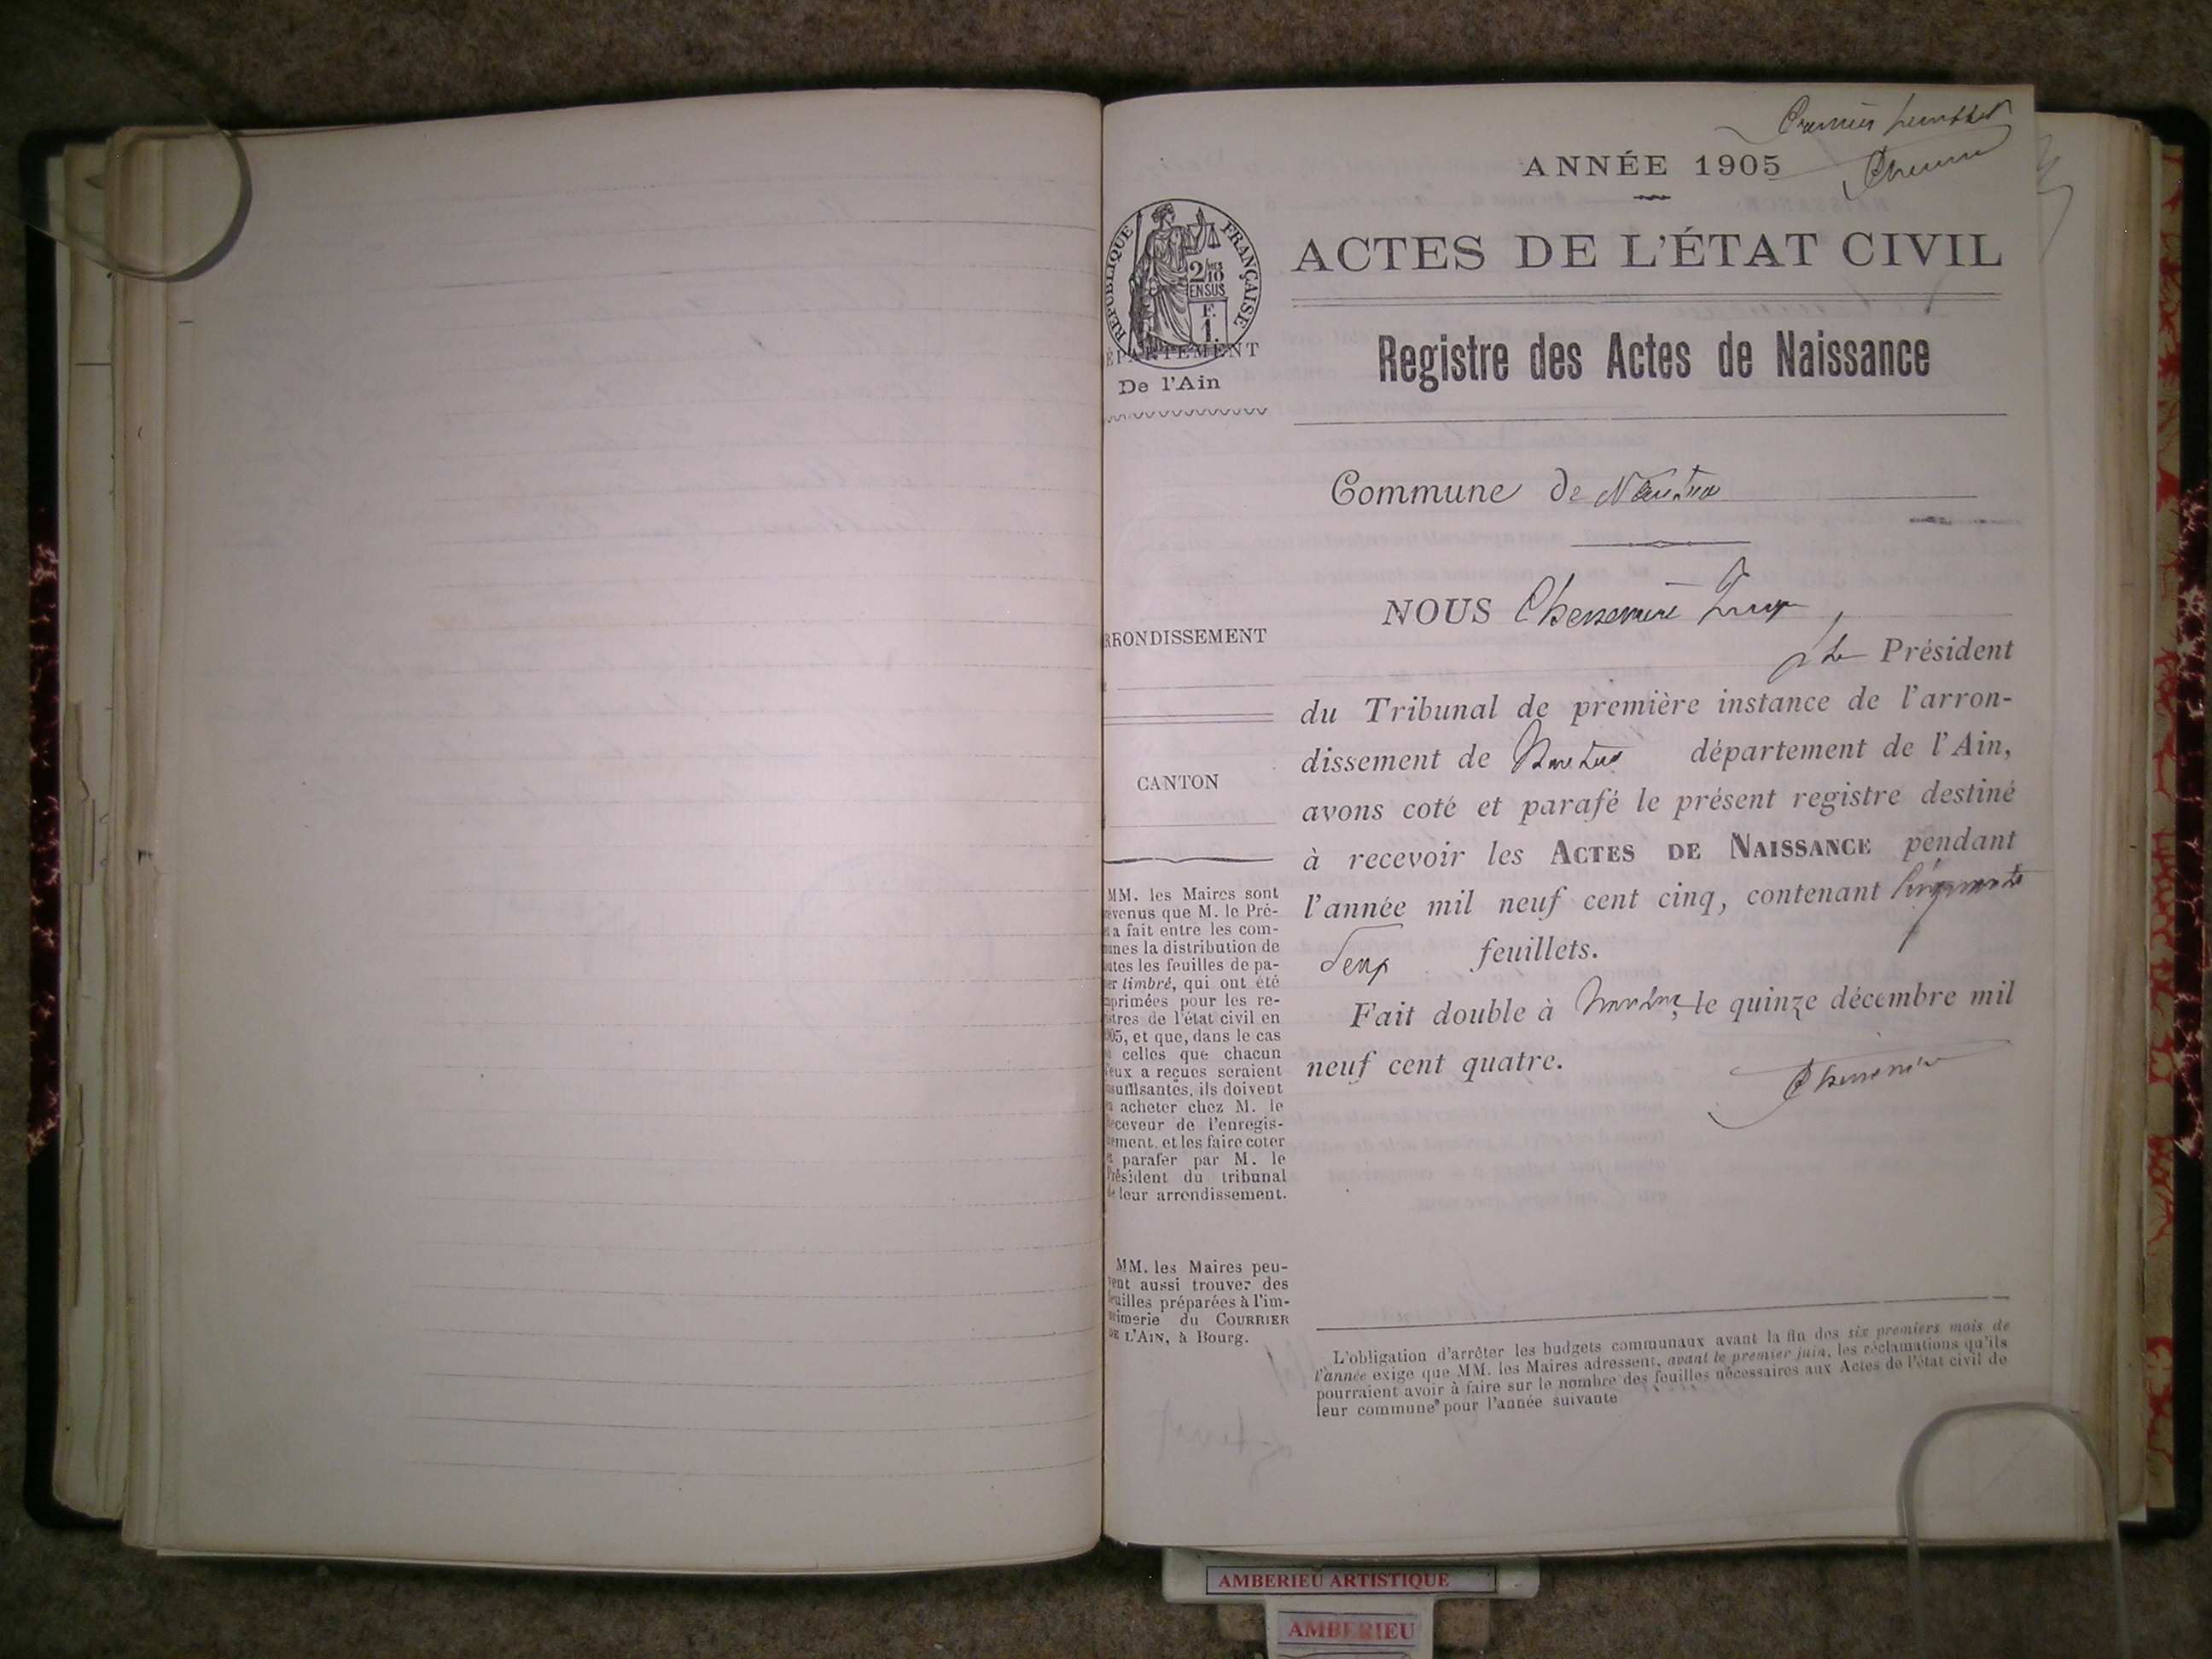 Premier feuillet
ANNÉE 1905
ACTES DE L'ÉTAT CIVIL
RÉPUBLIQUE FRANÇAISE
2/10 MES
EN SUS
F.
1.
ÉPARTEMENT
De l'Ain
Registre des Actes de Naissance
Commune de Nantua
NOUS
Président
du Tribunal de première instance de l'arron-
dissement de Nantua département de l'Ain,
avons coté et parafé le présent registre destiné
à recevoir les ACTES DE NAISSANCE pendant
l'année mil neuf cent cinq, contenant Cinquante
feuillets.
Fait double à Nantua, le quinze décembre mil
neuf cent quatre.
RRONDISSEMENT
CANTON
MM. les Maires sont
évenus que M. le Pré-
et a fait entre les com-
unes la distribution de
utes les feuilles de pa-
er timbré, qui ont été
mprimées pour les re-
istres de l'état civil en
905, et que, dans le cas
celles que chacun
'eux a reçues seraient
nsuffisantes, ils doivent
en acheter chez M. le
Receveur de l'enregis-
ement, et les faire coter
et parafer par M. le
Président du tribunal
de leur arrondissement.
MM. les Maires peu-
vent aussi trouver des
feuilles préparées à l'im-
rimerie du COURRIER
DE L'AIN, à Bourg.
L'obligation d'arrêter les budgets communaux avant la fin des six premiers mois de
l'année exige que MM. les Maires adressent, avant le premier juin, les réclamations qu'ils
pourraient avoir à faire sur le nombre des feuilles nécessaires aux Actes de l'état civil de
leur commune pour l'année suivante
AMBERIEU ARTISTIQUE
AMBERIEU